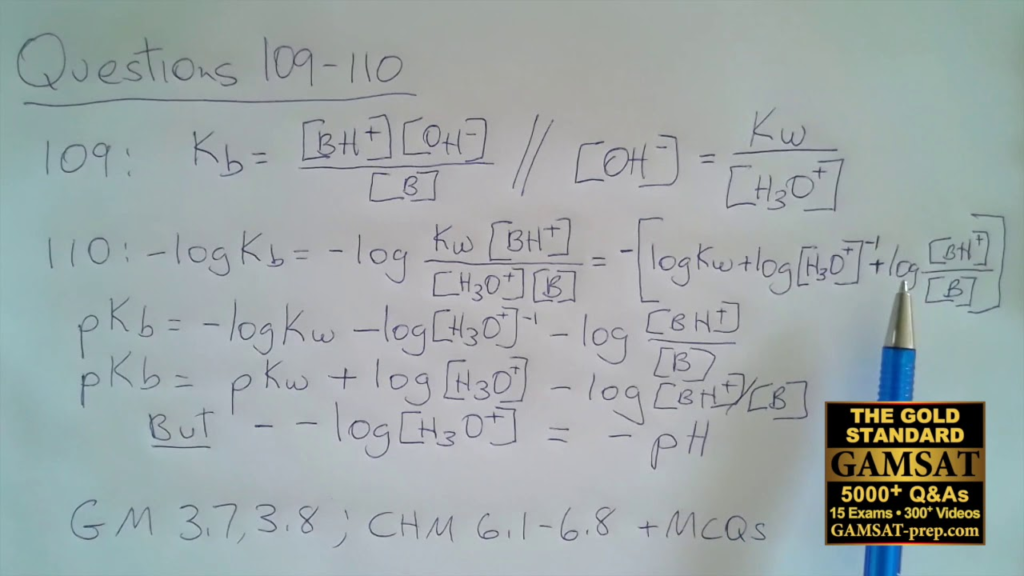 Questions 109-110
109: Kb = [BH⁺][OH⁻]/[B] // [OH⁻] = Kw/[H₃O⁺]
110: -log Kb = -log Kw[BH⁺]/[H₃O⁺][B] = -[log Kw + log[H₃O⁺]⁻¹ + log [BH⁺]/[B]]
pKb = -log Kw - log[H₃O⁺]⁻¹ - log [BH⁺]/[B]
pKb = pKw + log[H₃O⁺] - log[BH⁺]/[B]
But - - log[H₃O⁺] = - pH
GM 3.7, 3.8 ; CHM 6.1-6.8 + MCQs
THE GOLD
STANDARD
GAMSAT
5000⁺ Q&As
15 Exams • 300⁺ Videos
GAMSAT-prep.com